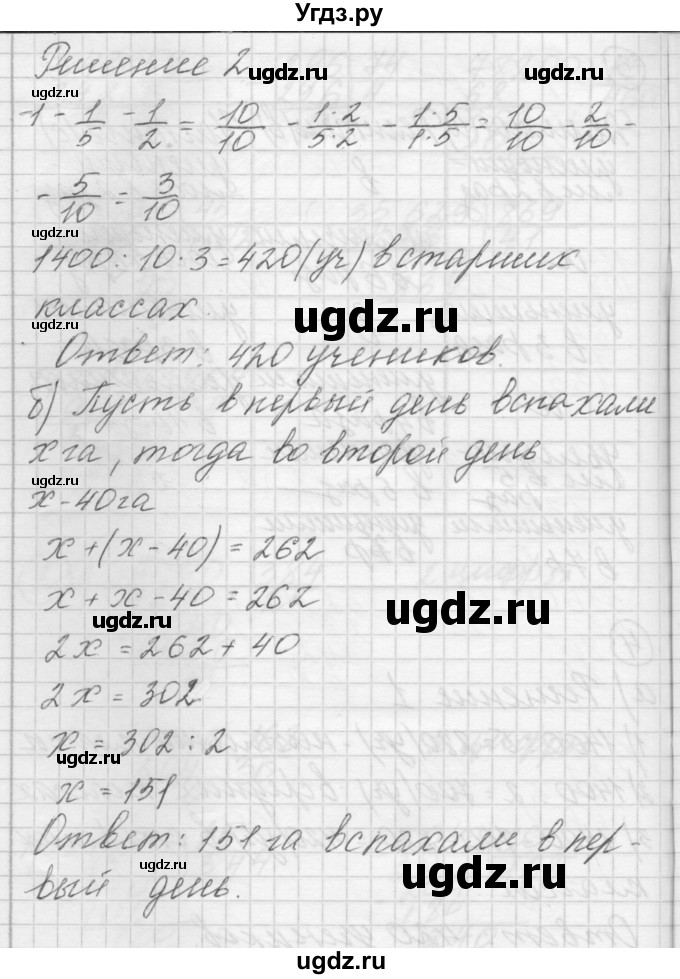 Угдз.ру
Решение 2
-1 - 1/5 - 1/2 = 10/10 - 1·2/5·2 - 1·5/1·5 = 10/10 - 2/10 -
- 5/10 = 3/10
1400 : 10 · 3 = 420 (уч) в старших
классах.
Ответ: 420 учеников.
б) Пусть в первый день вспахали
x га, тогда во второй день
x - 40 га
x + (x - 40) = 262
x + x - 40 = 262
2x = 262 + 40
2x = 302
x = 302 : 2
x = 151
Ответ: 151 га вспахали в пер-
вый день.
ugdz.ru
ugdz.ru
ugdz.ru
ugdz.ru
ugdz.ru
ugdz.ru
ugdz.ru
ugdz.ru
ugdz.ru
ugdz.ru
ugdz.ru
ugdz.ru
ugdz.ru